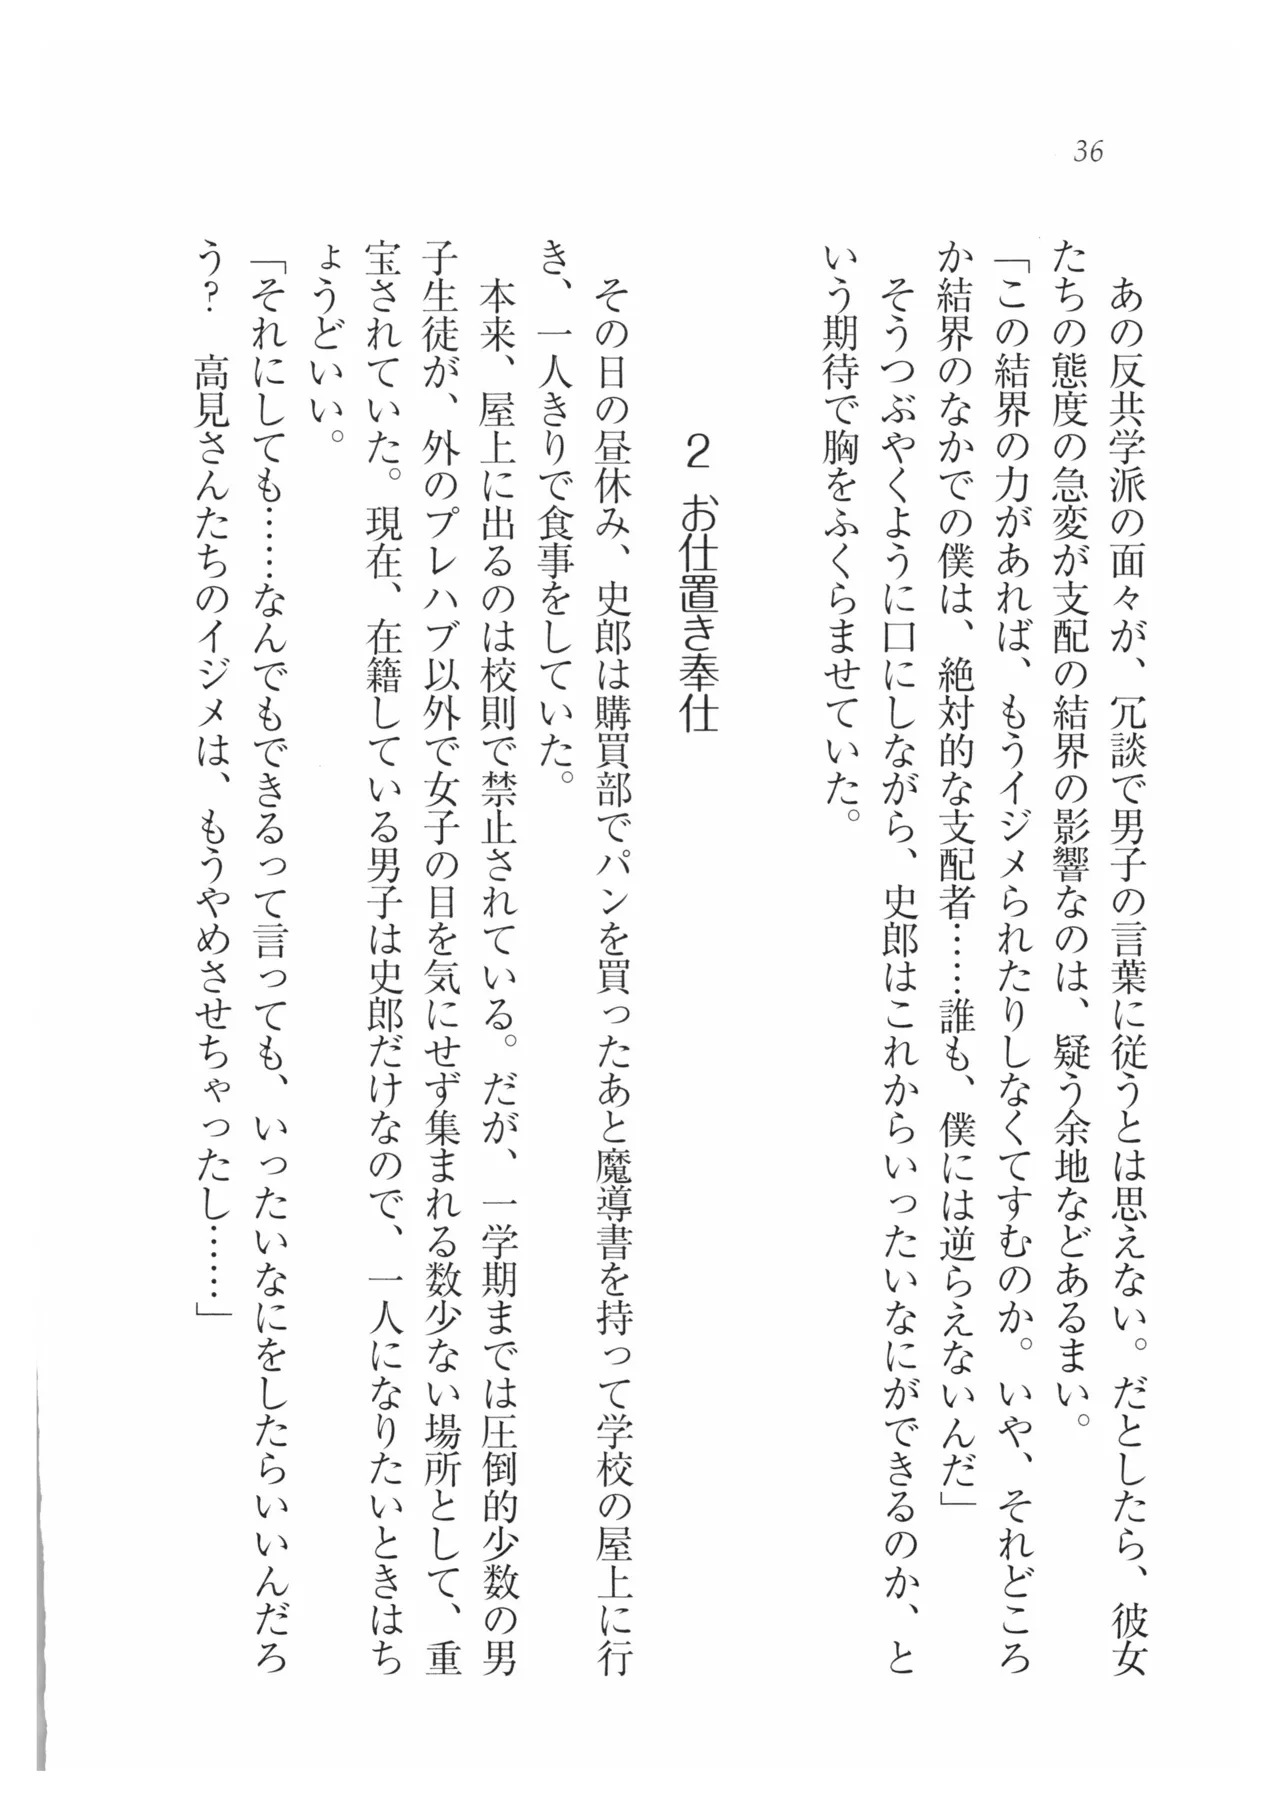 36
　あの反共学派の面々が、冗談で男子の言葉に従うとは思えない。だとしたら、彼女
たちの態度の急変が支配の結界の影響なのは、疑う余地などあるまい。
「この結界の力があれば、もうイジメられたりしなくてすむのか。いや、それどころ
か結界のなかでの僕は、絶対的な支配者……誰も、僕には逆らえないんだ」
　そうつぶやくように口にしながら、史郎はこれからいったいなにができるのか、と
いう期待で胸をふくらませていた。
2 お仕置き奉仕
　その日の昼休み、史郎は購買部でパンを買ったあと魔導書を持って学校の屋上に行
き、一人きりで食事をしていた。
　本来、屋上に出るのは校則で禁止されている。だが、一学期までは圧倒的少数の男
子生徒が、外のプレハブ以外で女子の目を気にせず集まれる数少ない場所として、重
宝されていた。現在、在籍している男子は史郎だけなので、一人になりたいときはち
ょうどいい。
「それにしても……なんでもできるって言っても、いったいなにをしたらいいんだろ
う？　高見さんたちのイジメは、もうやめさせちゃったし……」